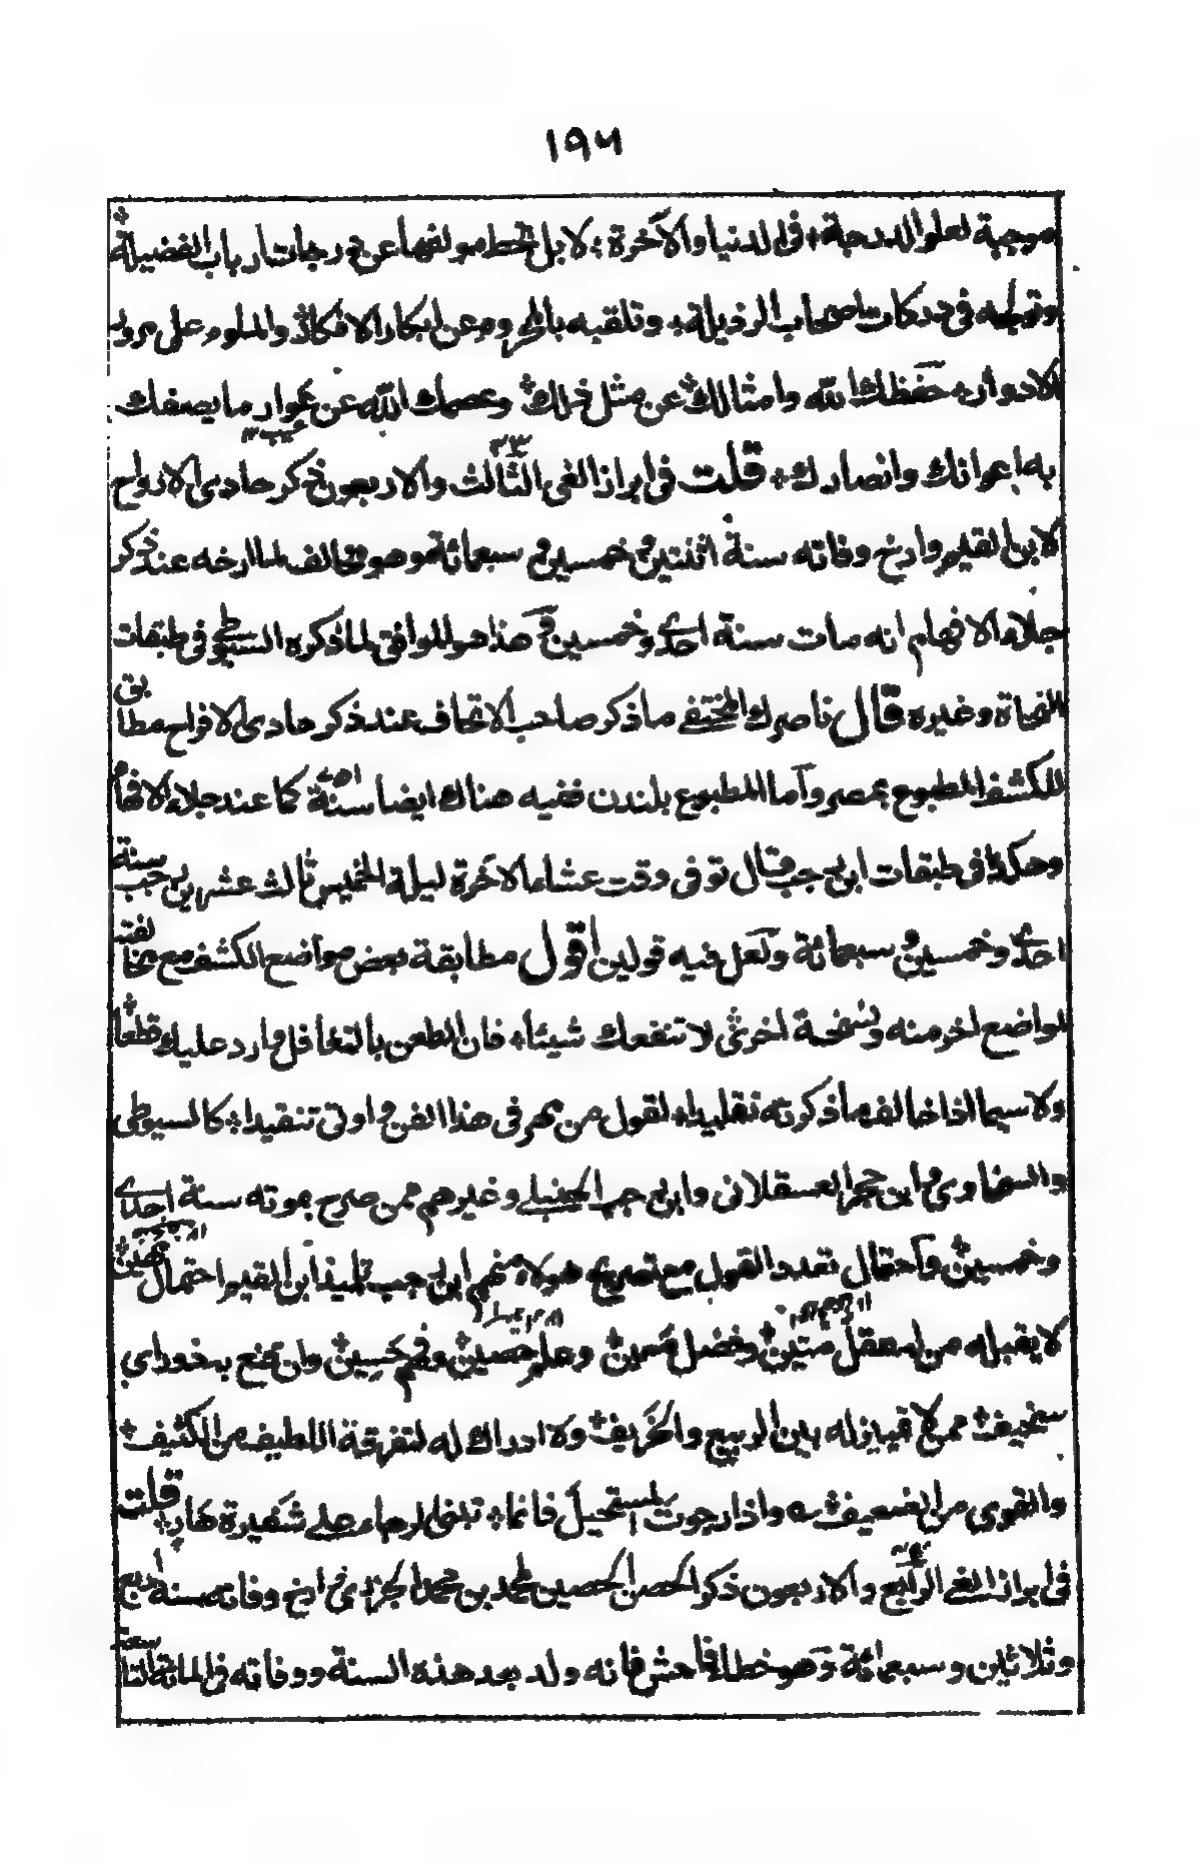 ١٩٦
موجبة لعلو الدرجة، في الدنيا والآخرة، لا بل تحط مولفها عن درجات أرباب الفضيلة
في دركات أصحاب الرذيلة، وتلقبه عن ابكار الافكار والملوم على
الادوار، حفظك الله وامثالك عن مثل ذلك وعصمك الله عن عوار ما يصفك
عيب
به اعوانك وانصارك، قلت في ابراز الغي الثالث والاربعون ذكر حادى الارواح
٤٣
لابن القيم وارخ وفاته سنة اثنتين وخمسين وسبعمائة وهو مخالف لما ارخه عند ذكر
جلاء الافهام انه مات سنة احدى وخمسين وهذا هو الموافق لما ذكره السيوطي في طبقات
النحاة وغيره قال ناصرك المختفي ما ذكر صاحب الاتحاف عند ذكر حادى الافراح مطابق
للكشف المطبوع بمصر وأما المطبوع بلندن ففيه هناك ايضا سنة ٧٥١ كما عند جلاء الافهام
وهكذا في طبقات ابن رجب وقال توفي وقت عشاء الآخرة ليلة الخميس ثالث عشرين رجب سنة
احدى وخمسين وسبعمائة ولعل فيه قولين اقول مطابقة بعض مواضع الكشف مع مخالفته
لمواضع اخر منه ونسخة اخرى لا تنفعك شيئا، فان الطعن بالتغافل وارد عليك قطعا
ولا سيما اذا خالف ما ذكرته تقليدا، لقول من مهر في هذا الفن واوتى تنقيدا، كالسيوطي
والسخاوي وابن حجر العسقلاني وابن رجب الحنبلي وغيرهم ممن صرح بموته سنة احدى
وخمسين واحتمال تعدد القول مع تصريح هولاء منهم ابن رجب تلميذ ابن القيم احتمال مهين
لا يقبله من له عقل متين وفضل مبين وعلم حصين وفهم حسين وان يمنع به ذوراى
سخيف ممن لا تمييز له بين الربيع والخريف ولا ادراك له لتفرقة اللطيف من الكثيف
والقوى من الضعيف، واذا رجوت المستحيل فانما، تبنى الرجاء على شفيرة هار، قلت
في ابراز الغي الرابع والاربعون ذكر الحصن الحصين لمحمد بن محمد الجزري وارخ وفاته سنة اربع
وثلاثين وسبعمائة وهو خطاء فاحش فانه ولد بعد هذه السنة ووفاته في المائة التاسعة